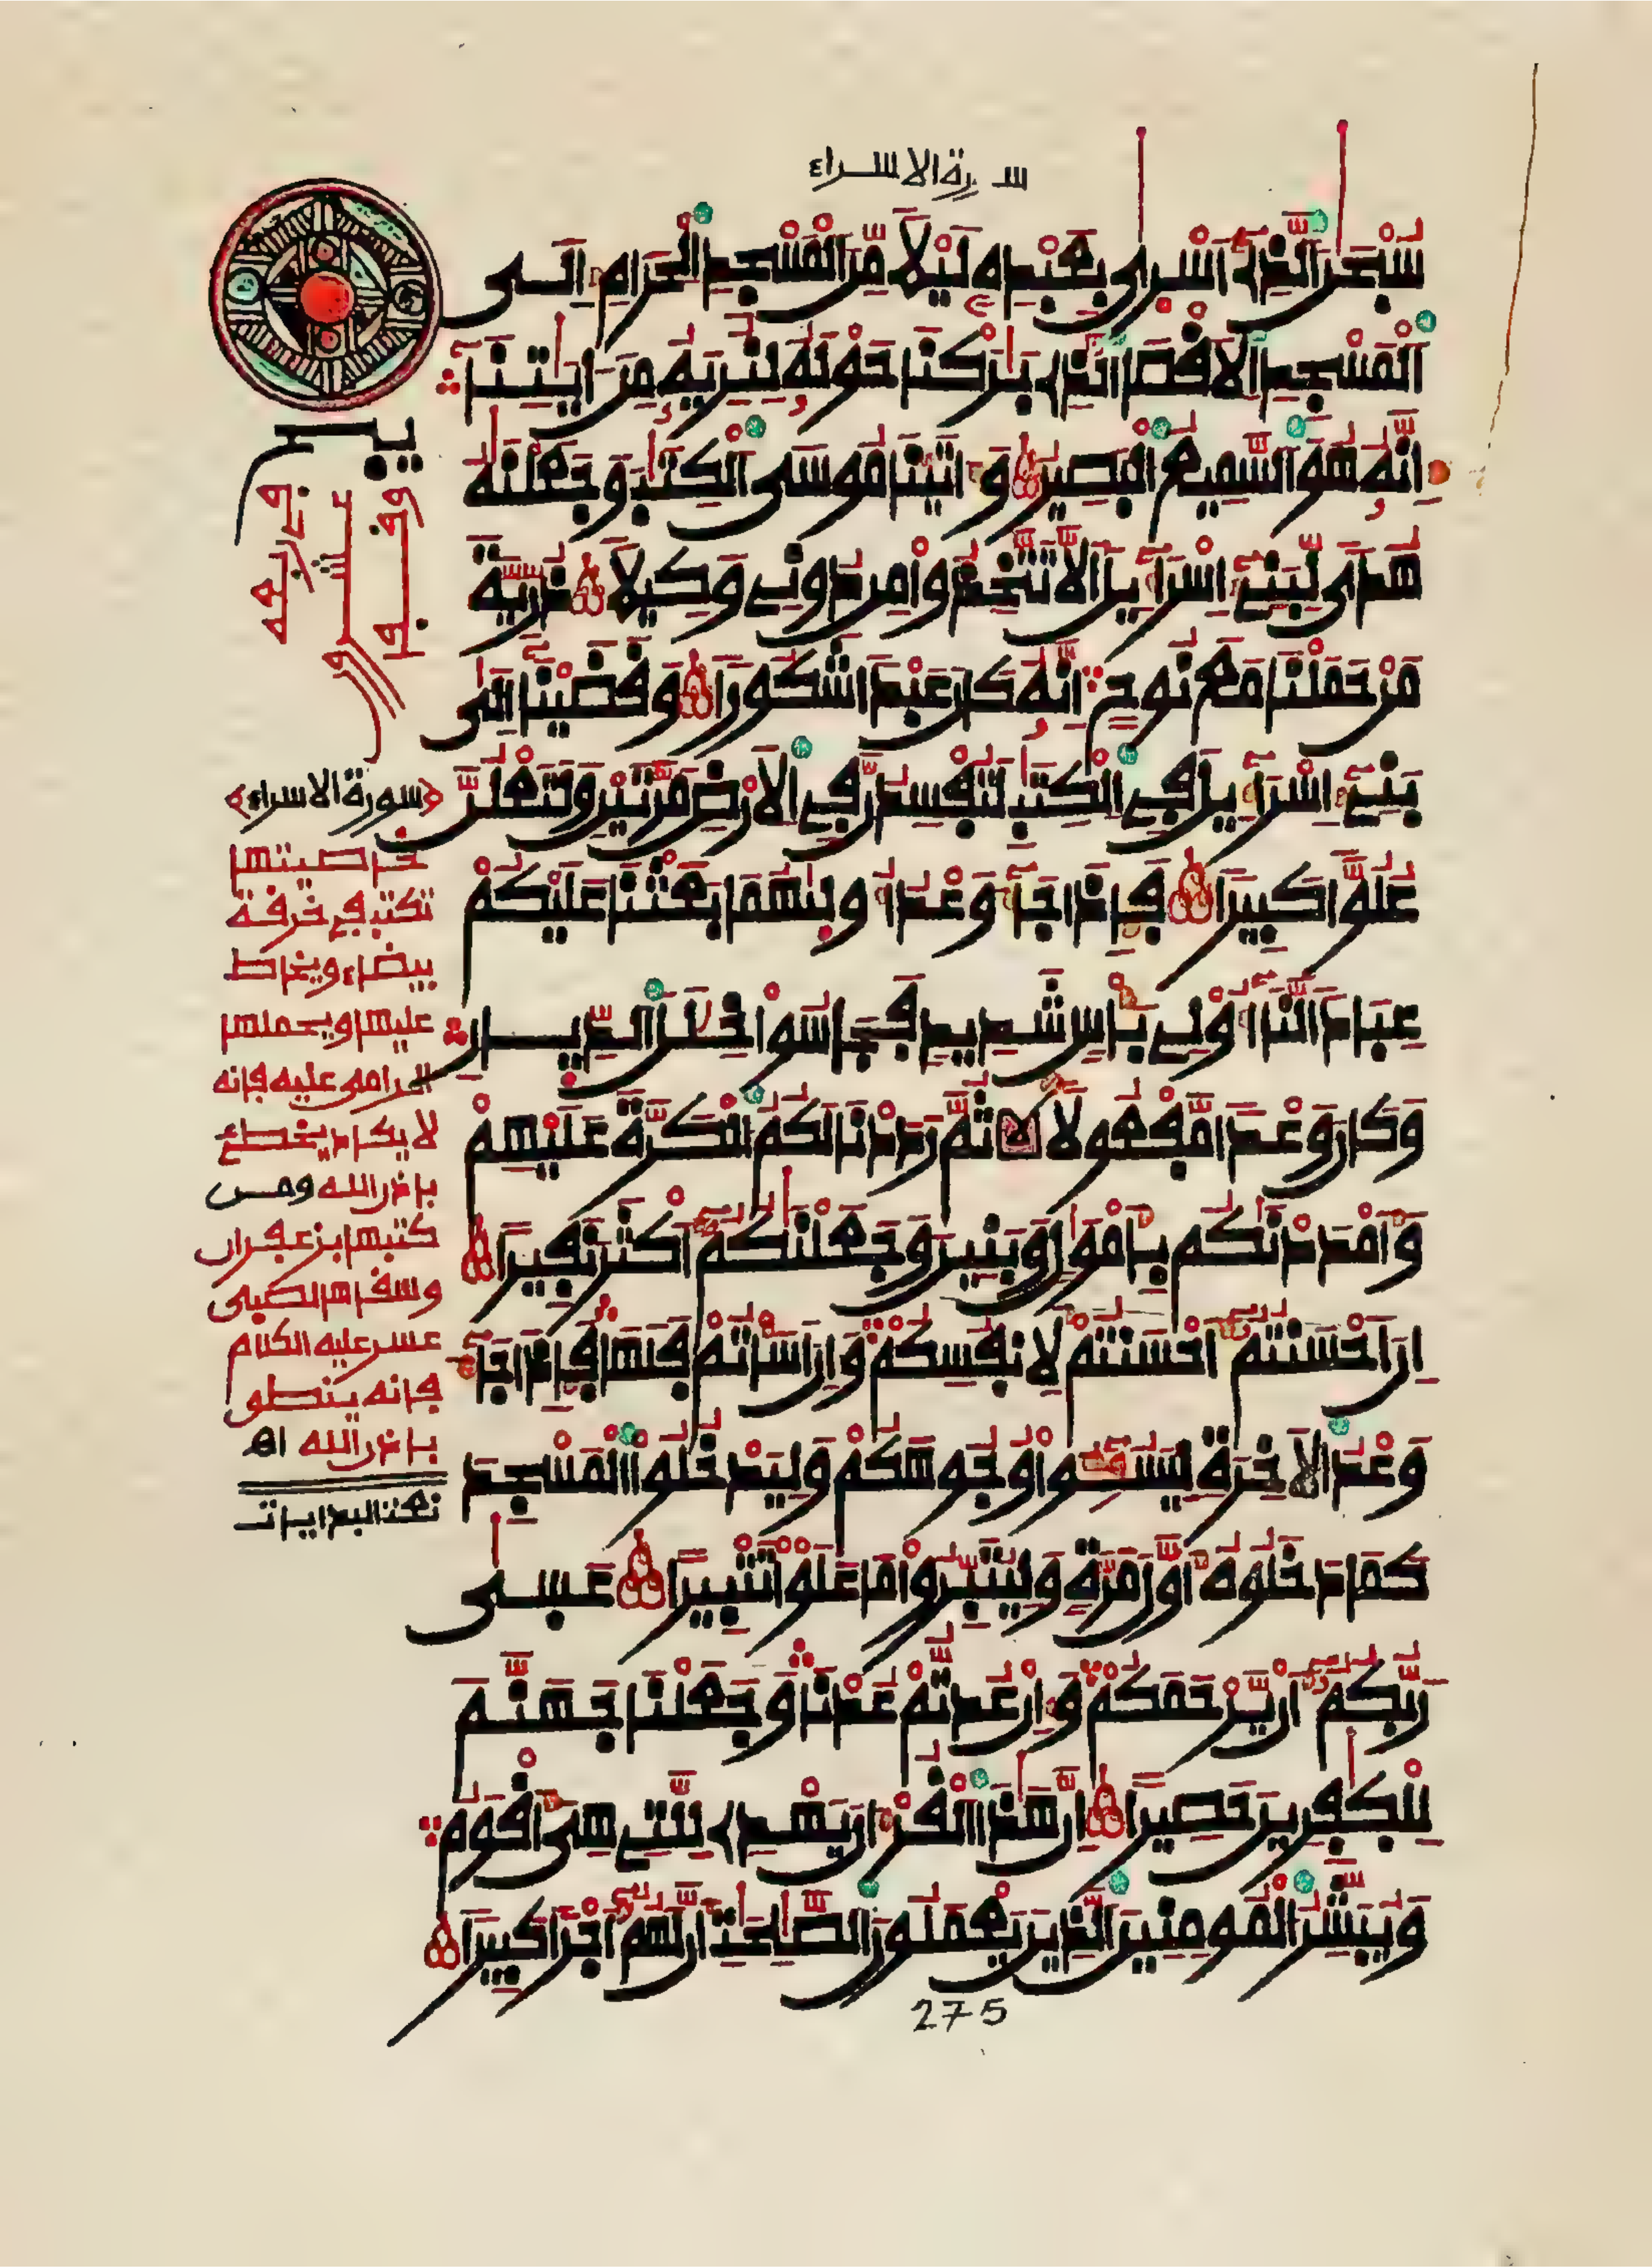 سورة الاسراء
سُبْحَٰنَ اَ۬لذِےٓ أَسْر۪يٰ بِعَبْدِهِۦ لَيْلاٗ مِّنَ اَ۬لْمَسْجِدِ اِ۬لْحَرَامِ إِلَي
اَ۬لْمَسْجِدِ اِ۬لَاقْصَا اَ۬لذِے بَٰرَكْنَا حَوْلَهُۥ لِنُرِيَهُۥ مِنَ اٰيَٰتِنَآ
إِنَّهُۥ هُوَ اَ۬لسَّمِيعُ اُ۬لْبَصِيرُ وَءَاتَيْنَا مُوسَي اَ۬لْكِتَٰبَ وَجَعَلْنَٰهُ
هُديٗ لِّبَنِےٓ إِسْرَآءِيلَ أَلَّا تَتَّخِذُواْ مِن دُونِے وَكِيلاٗ ذُرِّيَّةَ
مَنْ حَمَلْنَا مَعَ نُوحٍ اِنَّهُۥ كَانَ عَبْداٗ شَكُوراٗ وَقَضَيْنَآ إِلَيٰ
بَنِےٓ إِسْرَآءِيلَ فِے اِ۬لْكِتَٰبِ لَتُفْسِدُنَّ فِے اِ۬لَارْضِ مَرَّتَيْنِ وَلَتَعْلُنَّ
عُلُوّاٗ كَبِيراٗ فَإِذَا جَآءَ وَعْدُ أُولَيٰهُمَا بَعَثْنَا عَلَيْكُمْ
عِبَاداٗ لَّنَآ أُوْلِے بَأْسٖ شَدِيدٖ فَجَاسُواْ خِلَٰلَ اَ۬لدِّيَارِ
وَكَانَ وَعْداٗ مَّفْعُولاٗ ثُمَّ رَدَدْنَا لَكُمُ اُ۬لْكَرَّةَ عَلَيْهِمْ
وَأَمْدَدْنَٰكُم بِأَمْوَٰلٖ وَبَنِينَ وَجَعَلْنَٰكُمُۥٓ أَكْثَرَ نَفِيراً
إِنَ اَحْسَنتُمُۥٓ أَحْسَنتُمْ لِأَنفُسِكُمْ وَإِنَ اَسَأْتُمْ فَلَهَا فَإِذَا جَآءَ
وَعْدُ اُ۬لَاخِرَةِ لِيَسُـُٔواْ وُجُوهَكُمْ وَلِيَدْخُلُواْ اُ۬لْمَسْجِدَ
كَمَا دَخَلُوهُ أَوَّلَ مَرَّةٖ وَلِيُتَبِّرُواْ مَا عَلَوْاْ تَتْبِيراً عَسَيٰ
رَبُّكُمُۥٓ أَنْ يَّرْحَمَكُمْ وَإِنْ عُدتُّمْ عُدْنَا وَجَعَلْنَا جَهَنَّمَ
لِلْكٰ۪فِرِينَ حَصِيراً إِنَّ هَٰذَا اَ۬لْقُرْءَانَ يَهْدِے لِلتِے هِيَ أَقْوَمُ
وَيُبَشِّرُ اُ۬لْمُومِنِينَ اَ۬لذِينَ يَعْمَلُونَ اَ۬لصَّٰلِحَٰتِ أَنَّ لَهُمُۥٓ أَجْراٗ كَبِيراٗ
275
﴿سورة الاسراء﴾
خاصيتها
تكتب في خرقة
بيضاء ويخاط
عليها ويحملها
الرامى عليه فإنه
لا يكاد يخطئ
بإذن الله ومن
كتبها بزعفران
وسقاها لصبى
عسر عليه الكلام
فإنه ينطق
بإذن الله اهـ
نعت البدايات